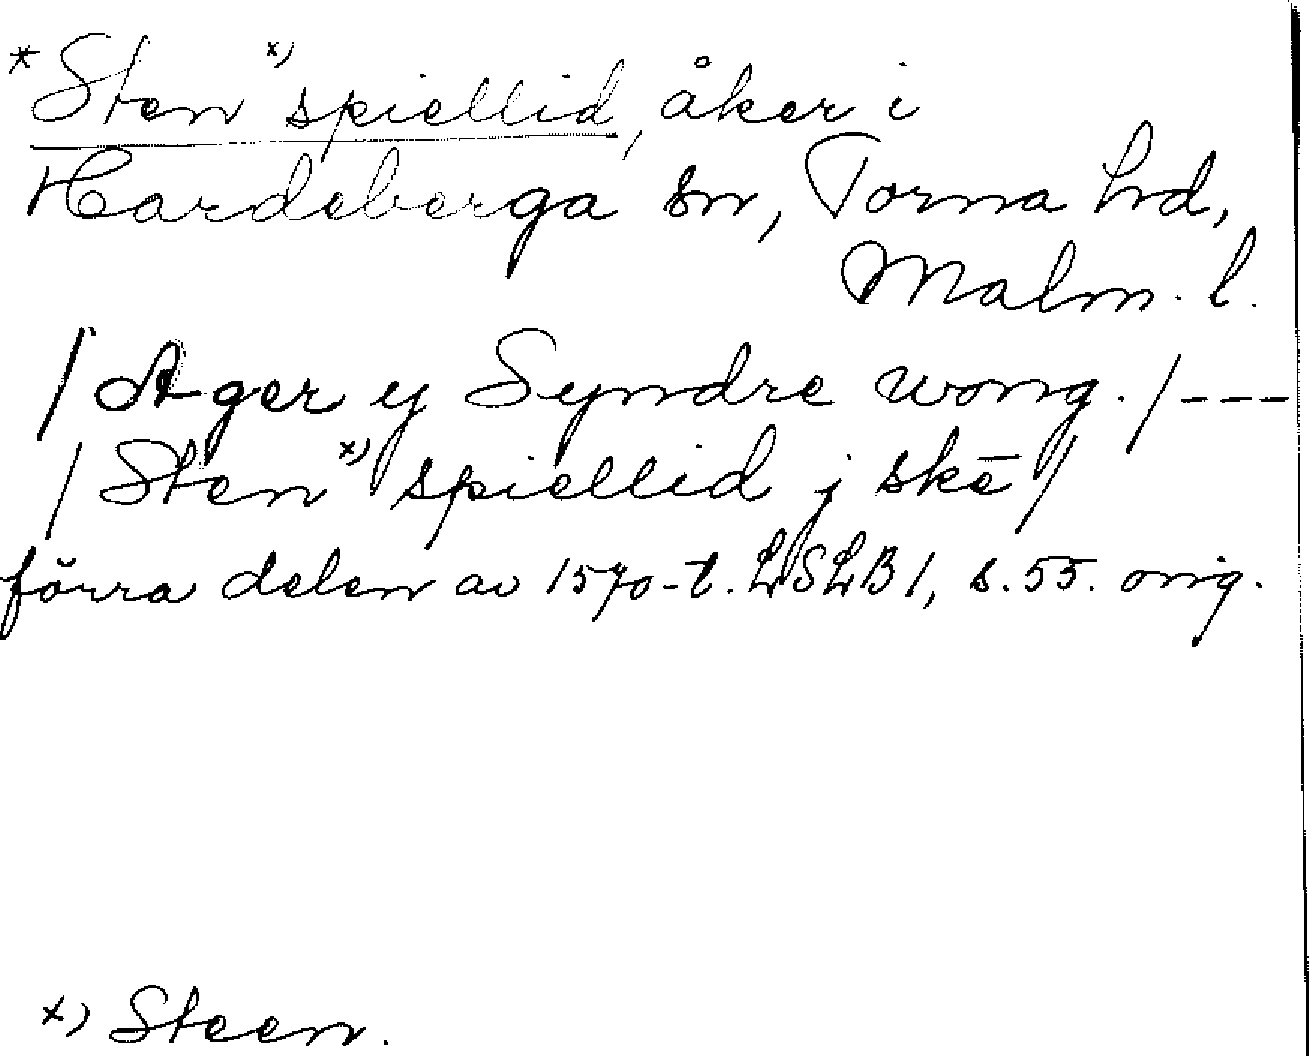 * Sten x) spiellid, åker i
Hardeberga sn, Torna hd,
Malm. l.
/ Ager y Syndre wong. / ---
/ Sten x) spiellid j skē /
förra delen av 1570-t. LSLB 1, s. 55. orig.
x) Steen.